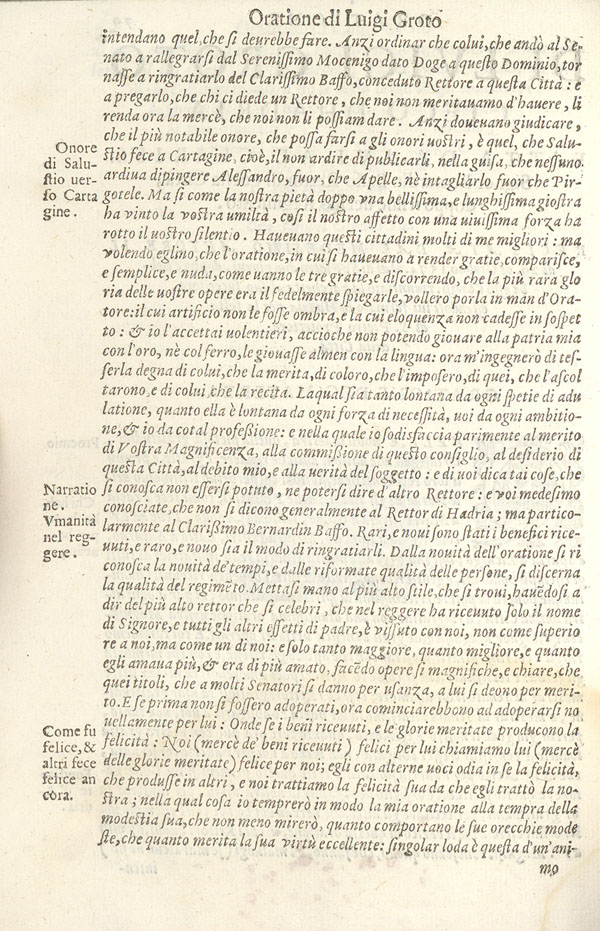 Oratione di Luigi Groto
intendano quel, che si deurebbe fare. Anzi ordinar che colui, che andò al Se-
nato a rallegrarsi dal Serenissimo Mocenigo dato Doge a questo Dominio, tor
nasse a ringratiarlo del Clarissimo Baffo, conceduto Rettore a questa Città: e
a pregarlo, che chi ci diede un Rettore, che noi non meritauamo d'hauere, li
renda ora la mercè, che noi non li possiam dare. Anzi doueuano giudicare,
che il più notabile onore, che possa farsi a gli onori uostri, è quel, che Salu-
stio fece a Cartagine, cioè, il non ardire di publicarli, nella guisa, che nessuno
ardiua dipingere Alessandro, fuor, che Apelle, nè intagliarlo fuor che Pir-
gotele. Ma si come la nostra pietà doppo vna bellissima, e lunghissima giostra
ha vinto la vostra umiltà, così il nostro affetto con una uiuissima forza ha
rotto il uostro silentio. Haueuano questi cittadini molti di me migliori: ma
volendo eglino, che l'oratione, in cui si haueuano a render gratie, comparisce,
e semplice, e nuda, come uanno le tre gratie, e discorrendo, che la più rara glo
ria delle uostre opere era il fedelmente spiegarle, vollero porla in man d'Ora-
tore: il cui artificio non le fosse ombra, e la cui eloquenza non cadesse in sospet
to: & io l'accettai uolentieri, accioche non potendo giouare alla patria mia
con l'oro, nè col ferro, le giouasse almen con la lingua: ora m'ingegnerò di tes-
serla degna di colui, che la merita, di coloro, che l'imposero, di quei, che l'ascol
tarono, e di colui, che la recita. Laqual sia tanto lontana da ogni spetie di adu
latione, quanto ella è lontana da ogni forza di necessità, uoi da ogni ambitio-
ne, & io da cotal professione: e nella quale io sodisfaccia parimente al merito
di Vostra Magnificenza, alla commissione di questo consiglio, al desiderio di
questa Città, al debito mio, e alla uerità del soggetto: e di uoi dica tai cose, che
si conosca non essersi potuto, ne potersi dire d'altro Rettore: e voi medesimo
conosciate, che non si dicono generalmente al Rettor di Hadria; ma partico-
larmente al Clarissimo Bernardin Baffo. Rari, e noui sono stati i benefici rice-
uuti, e raro, e nouo sia il modo di ringratiarli. Dalla nouità dell'oratione si ri
conosca la nouità de' tempi, e dalle riformate qualità delle persone, si discerna
la qualità del regimẽto. Mettasi mano al più alto stile, che si troui, hauẽdosi a
dir del più alto rettor che si celebri, che nel reggere ha riceuuto solo il nome
di Signore, e tutti gli altri effetti di padre, è vissuto con noi, non come superio
re a noi, ma come un di noi: e solo tanto maggiore, quanto migliore, e quanto
egli amaua più, & era di più amato, facẽdo opere sì magnifiche, e chiare, che
quei titoli, che a molti Senatori si danno per usanza, a lui si deono per meri-
to. E se prima non si fossero adoperati, ora cominciarebbono ad adoperarsi no
uellamente per lui: Onde se i beni riceuuti, e le glorie meritate producono la
felicità: Noi (mercè de' beni riceuuti) felici per lui chiamiamo lui (mercè
delle glorie meritate) felice per noi; egli con alterne uoci odia in se la felicità,
che produsse in altri, e noi trattiamo la felicità sua da che egli trattò la no-
stra; nella qual cosa io temprerò in modo la mia oratione alla tempra della
modestia sua, che non meno mirerò, quanto comportano le sue orecchie mode
ste, che quanto merita la sua virtù eccellente: singolar loda è questa d'un'ani-
mo
Onore
di Salu-
stio uer-
so Carta
gine.
Narratio
ne.
Vmanità
nel reg-
gere.
Come fu
felice, &
altri fece
felice an
cora.